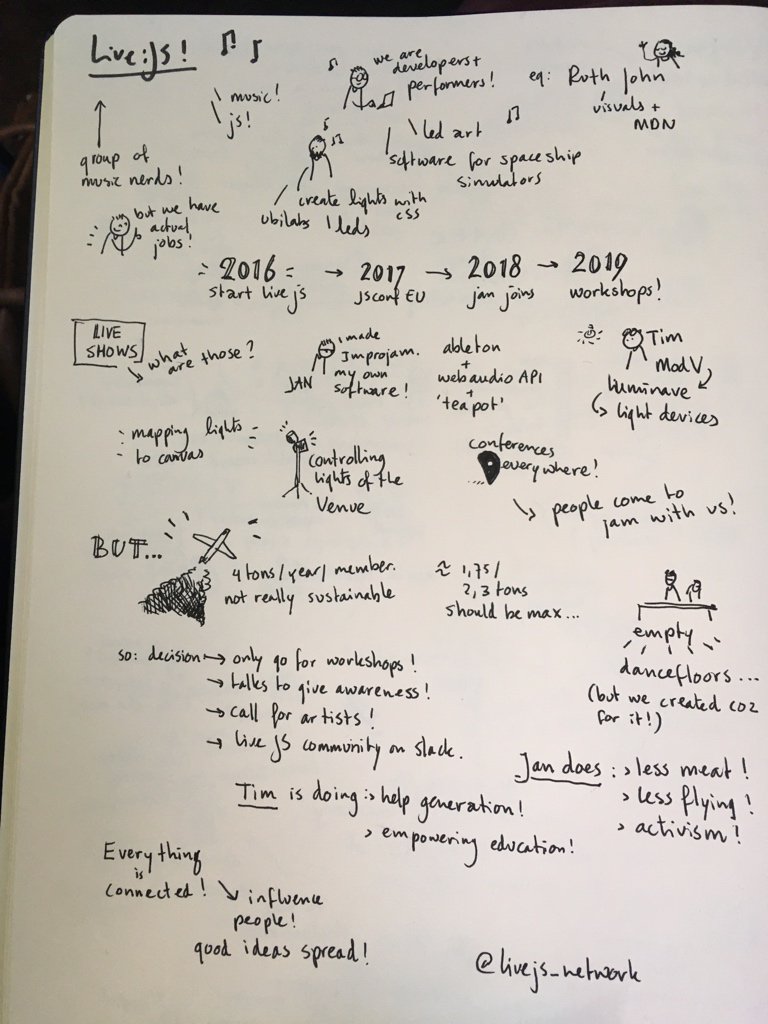 Live:js!
group of
music nerds!
music!
js!
we are
developers +
performers!
eq: Ruth John
visuals +
MDN
led art
software for spaceship
simulators
create lights with
css
ubilabs leds
but we have
actual
jobs!
2016 → 2017 → 2018 → 2019
start livejs
jsconf EU
jan joins
workshops!
LIVE
SHOWS
what
are those?
JAN
I made
Improjam.
my own
software!
ableton
+
webaudio API
+
'teapot'
Tim
ModV
Luminave
light devices
mapping lights
to canvas
controlling
lights of the
Venue
conferences
everywhere!
people come to
jam with us!
BUT...
4 tons/year/member.
not really sustainable
≈ 1,75/
2,3 tons
should be max...
empty
dancefloors...
(but we created co2
for it!)
so: decision → only go for workshops!
→ talks to give awareness!
→ call for artists!
→ live js community on slack.
Jan does: > less meat!
> less flying!
> activism!
Tim is doing: > help generation!
> empowering education!
Everything
is
connected!
influence
people!
good ideas spread!
@livejs_network